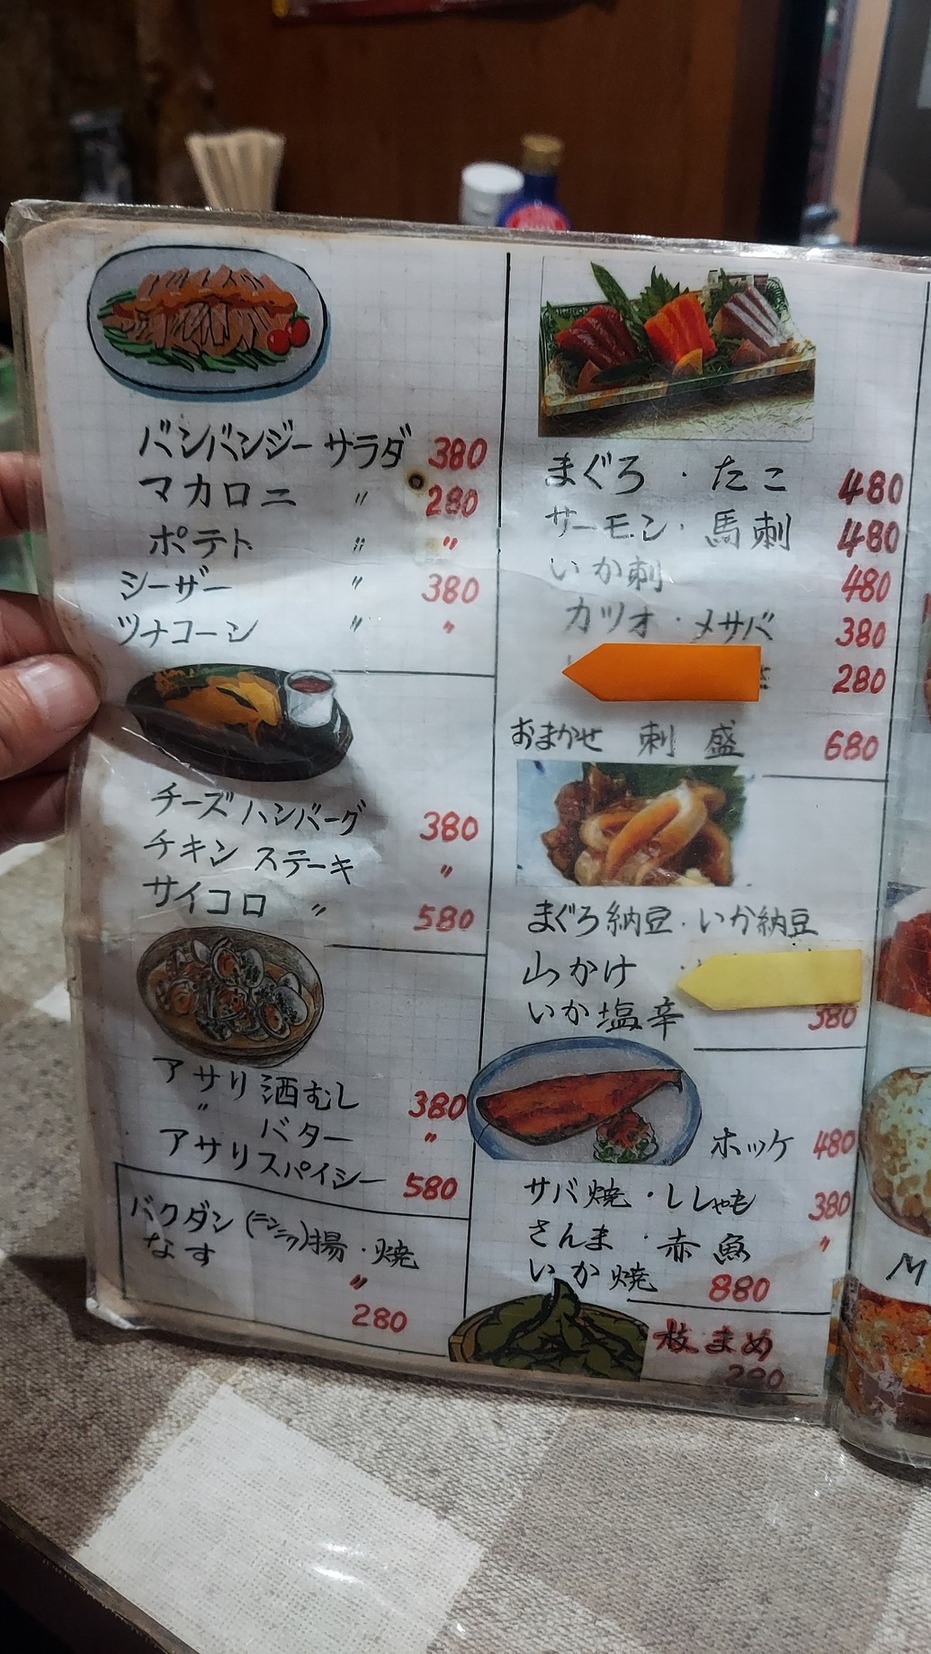 バンバンジーサラダ 380
マカロニ 〃 280
ポテト 〃 〃
シーザー 〃 380
ツナコーン 〃 〃
チーズハンバーグ 380
チキンステーキ 〃
サイコロ 〃 580
アサリ酒むし 380
〃 バター 〃
アサリスパイシー 580
バクダン(ニンニク)揚・焼
なす 〃
280
まぐろ・たこ 480
サーモン・馬刺 480
いか刺 480
カツオ・メサバ 380
280
おまかせ 刺盛 680
まぐろ納豆・いか納豆
山かけ
いか塩辛 380
ホッケ 480
サバ焼・ししゃも 380
さんま・赤魚 〃
いか焼 880
枝まめ
280
M